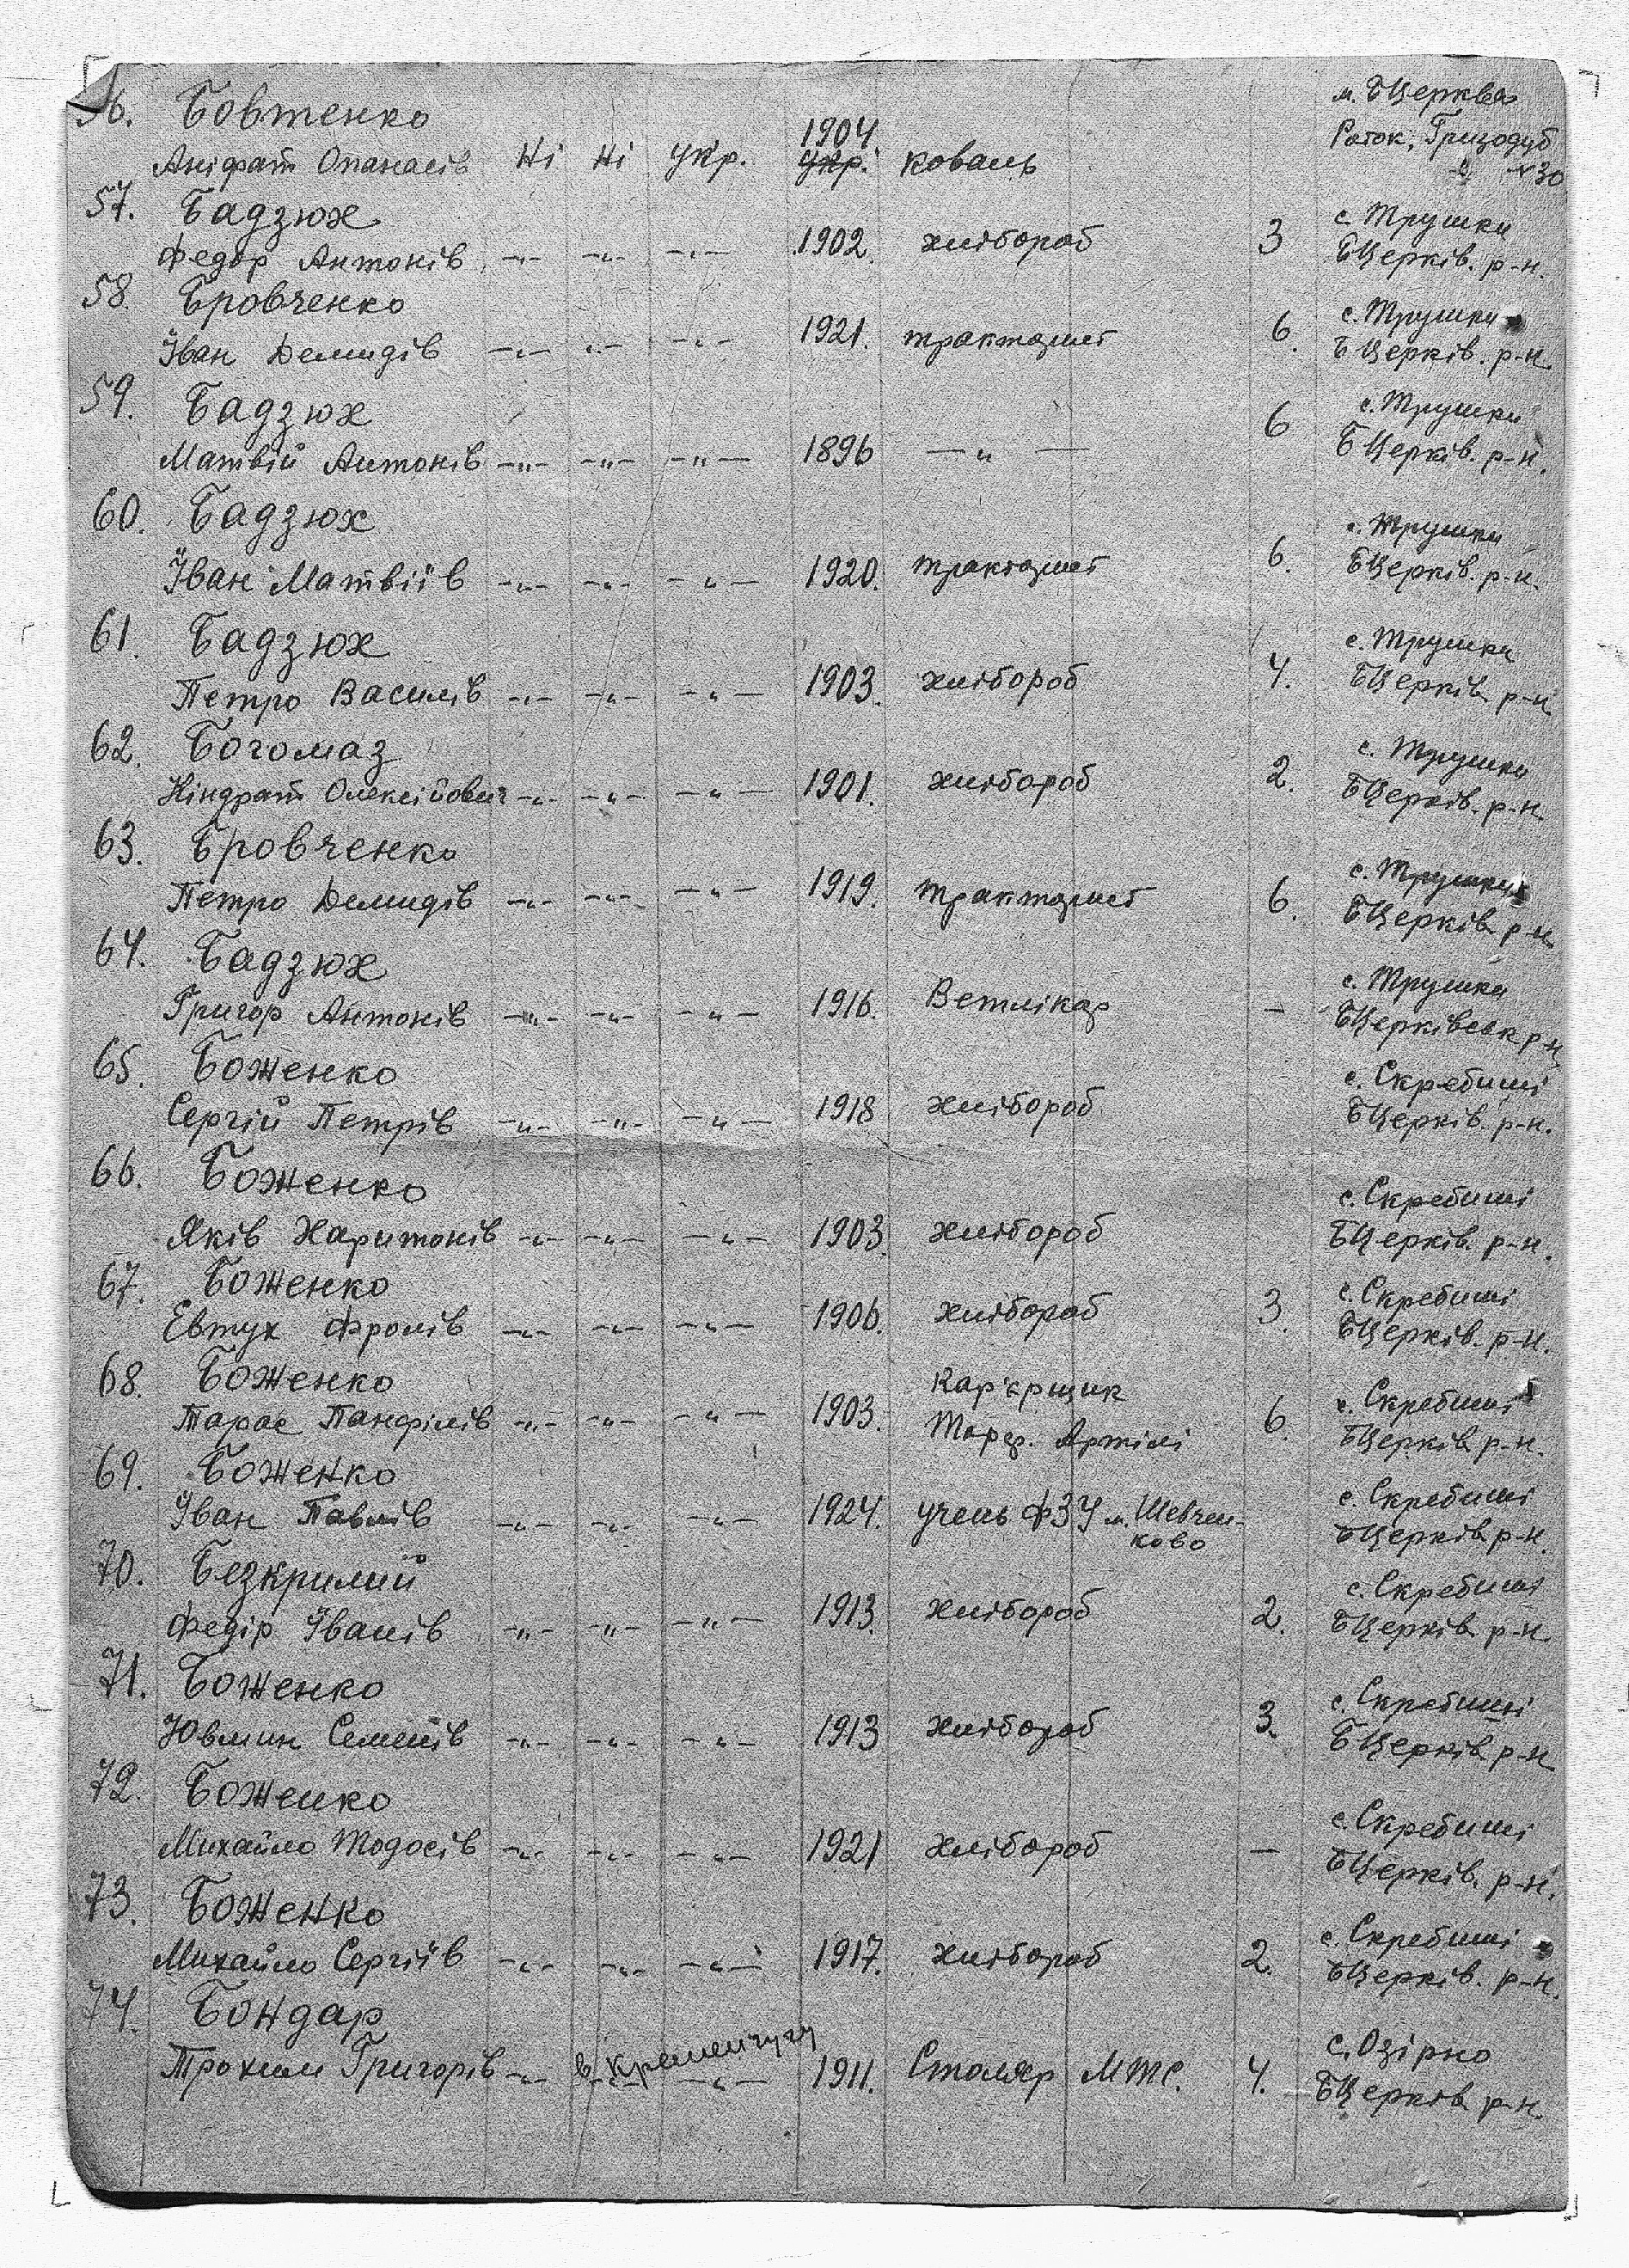 56. Бовтенко м. БЦерква
1904. Роток, Гризодуб
Аніфат Опанасів Ні Ні укр. укр. коваль №30
57. Бадзюх с. Трушки
Федор Антонів -„- -„- -„- 1902. хлібороб 3 БЦерків. р-н.
58. Бровченко с. Трушки
Іван Демидів -„- -„- -„- 1921. тракторист 6. БЦерків. р-н.
59. Бадзюх с. Трушки
Матвій Антонів -„- -„- -„- 1896 — „ — 6 БЦерків. р-н.
60. Бадзюх с. Трушки
Іван Матвіїв -„- -„- -„- 1920. тракторист 6. БЦерків. р-н.
61. Бадзюх с. Трушки
Петро Василів -„- -„- -„- 1903. хлібороб 4. БЦерків р-н
62. Богомаз с. Трушки
Кіндрат Олексійович -„- -„- -„- 1901. хлібороб 2. БЦерків. р-н.
63. Бровченко с. Трушки
Петро Демидів -„- -„- -„- 1919. тракторист 6. БЦерків р-н.
64. Бадзюх с. Трушки
Григор Антонів -„- -„- -„- 1916. Ветлікар - БЦерківськ р-н
65. Боженко с. Скребиші
Сергій Петрів -„- -„- -„- 1918 хлібороб БЦерків. р-н.
66. Боженко с. Скребиші
Яків Харитонів -„- -„- -„- 1903. хлібороб БЦерків. р-н.
67. Боженко с. Скребиші
Евтух Фролів -„- -„- -„- 1906. хлібороб 3. БЦерків. р-н.
68. Боженко Кар'єрщик с. Скребиші
Тарас Панфілів -„- -„- -„- 1903. Торф. Артілі 6. БЦерків р-н.
69. Боженко с. Скребиші
Іван Павлів -„- -„- -„- 1924. учень ФЗУ м. Шевчен- БЦерків р-н.
ково
70. Безкрилий с. Скребиші
Федір Іванів -„- -„- -„- 1913. хлібороб 2. БЦерків р-н
71. Боженко с. Скребиші
Ювмин Семенів -„- -„- -„- 1913 хлібороб 3. БЦерків р-н
72. Боженко с. Скребиші
Михайло Тодосів -„- -„- -„- 1921 хлібороб — БЦерків. р-н.
73. Боженко с. Скребиші
Михайло Сергіїв -„- -„- -„- 1917. хлібороб 2. БЦерків. р-н.
74. Бондар с. Озірно
в Кременчугу
Трохим Григорів -„- -„- -„- 1911. Столяр МТС. 4. БЦерків р-н.